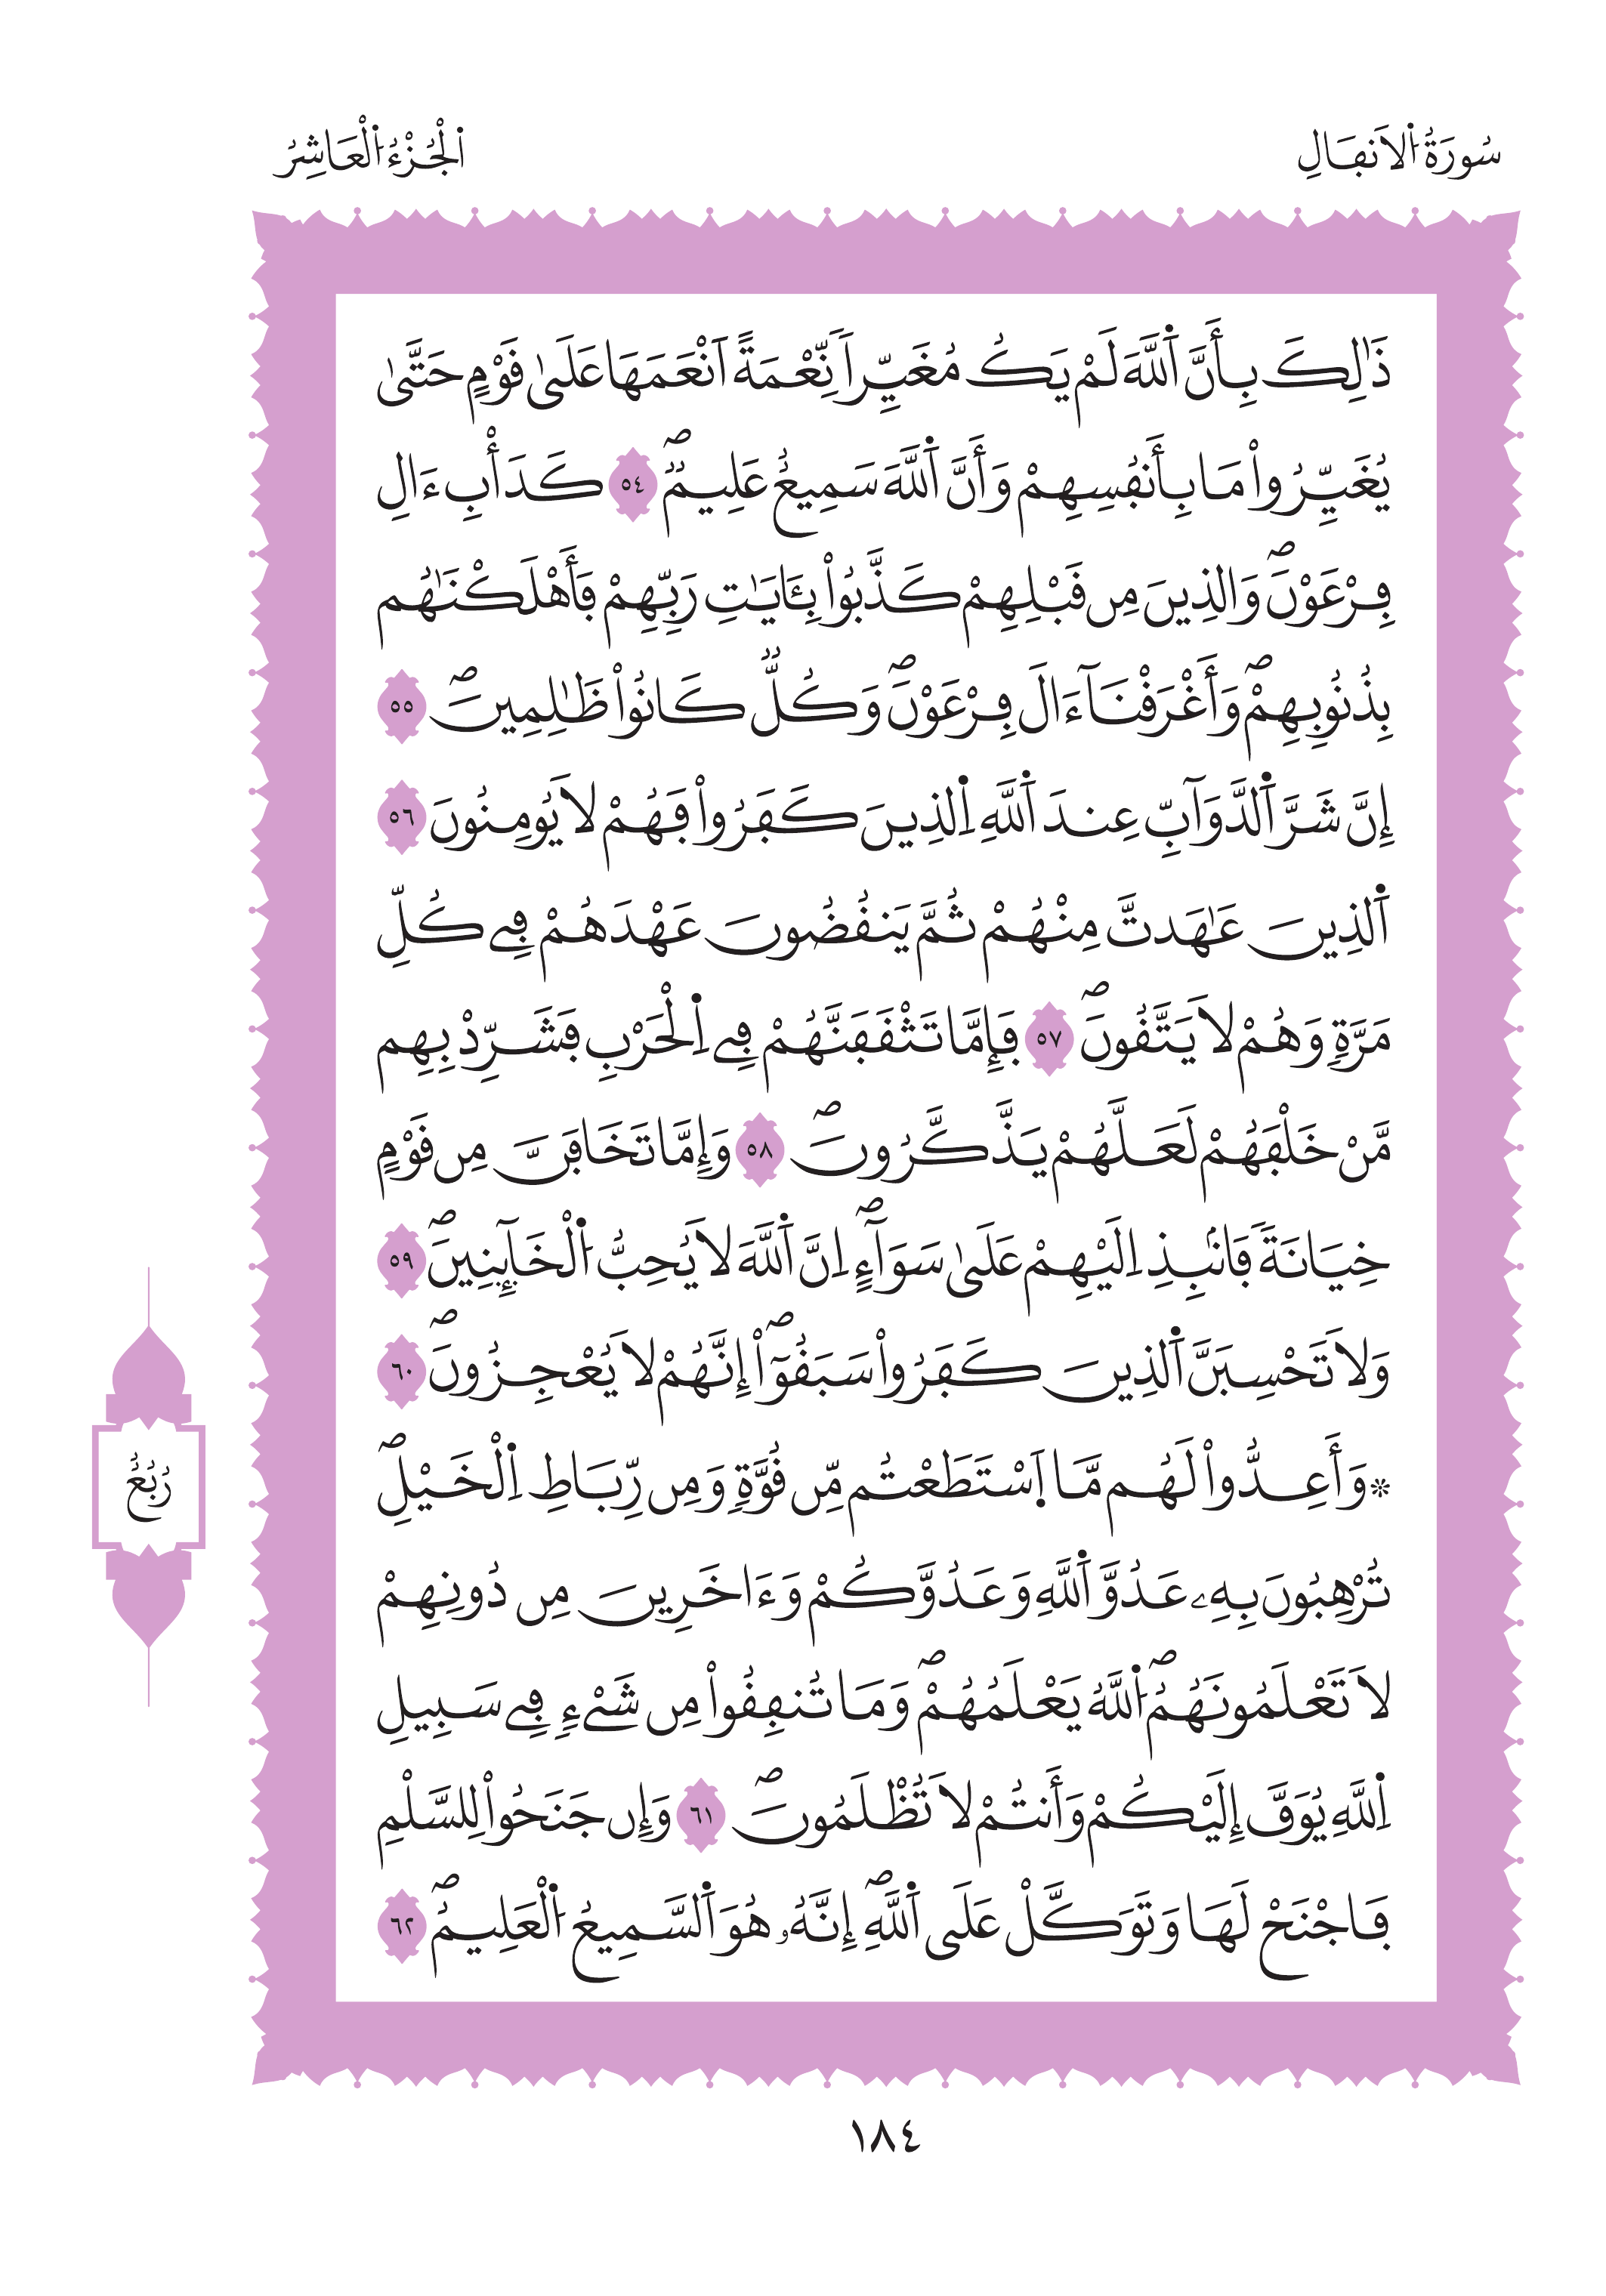 سُورَةُ الَانفَالِ
الْجُزْءُ الْعَاشِرُ
ذَٰلِكَ بِأَنَّ اَ۬للَّهَ لَمْ يَكُ مُغَيِّراٗ نِّعْمَةً اَنْعَمَهَا عَلَىٰ قَوْمٍ حَتَّىٰ
يُغَيِّرُواْ مَا بِأَنفُسِهِمْ وَأَنَّ اَ۬للَّهَ سَمِيعٌ عَلِيمٞۖ ٥٤ كَدَأْبِ ءَالِ
فِرْعَوْنَۖ وَالذِينَ مِن قَبْلِهِمْ كَذَّبُواْ بِـَٔايَٰتِ رَبِّهِمْ فَأَهْلَكْنَٰهُم
بِذُنُوبِهِمْۖ وَأَغْرَقْنَآ ءَالَ فِرْعَوْنَۖ وَكُلّٞ كَانُواْ ظَٰلِمِينَۖ ٥٥
إِنَّ شَرَّ اَ۬لدَّوَآبِّ عِندَ اَ۬للَّهِ اِ۬لذِينَ كَفَرُواْ فَهُمْ لَا يُومِنُونَ ٥٦
اَ۬لذِينَ عَٰهَدتَّ مِنْهُمْ ثُمَّ يَنقُضُونَ عَهْدَهُمْ فِے كُلِّ
مَرَّةٖ وَهُمْ لَا يَتَّقُونَۖ ٥٧ فَإِمَّا تَثْقَفَنَّهُمْ فِے اِ۬لْحَرْبِ فَشَرِّدْ بِهِم
مَّنْ خَلْفَهُمْ لَعَلَّهُمْ يَذَّكَّرُونَۖ ٥٨ وَإِمَّا تَخَافَنَّ مِن قَوْمٍ
خِيَانَةٗ فَانۢبِذِ اِلَيْهِمْ عَلَىٰ سَوَآءٍۖ اِنَّ اَ۬للَّهَ لَا يُحِبُّ اُ۬لْخَآئِنِينَۖ ٥٩
وَلَا تَحْسِبَنَّ اَ۬لذِينَ كَفَرُواْ سَبَقُوٓاْۖ إِنَّهُمْ لَا يُعْجِزُونَۖ ٦٠
۞وَأَعِدُّواْ لَهُم مَّا اَ۪سْتَطَعْتُم مِّن قُوَّةٖ وَمِن رِّبَاطِ اِ۬لْخَيْلِۖ
تُرْهِبُونَ بِهِۦ عَدُوَّ اَ۬للَّهِ وَعَدُوَّكُمْ وَءَاخَرِينَ مِن دُونِهِمْ
لَا تَعْلَمُونَهُمُۖ اُ۬للَّهُ يَعْلَمُهُمْۖ وَمَا تُنفِقُواْ مِن شَےْءٖ فِے سَبِيلِ
اِ۬للَّهِ يُوَفَّ إِلَيْكُمْ وَأَنتُمْ لَا تُظْلَمُونَۖ ٦١ وَإِن جَنَحُواْ لِلسَّلْمِ
فَاجْنَحْ لَهَا وَتَوَكَّلْ عَلَى اَ۬للَّهِۖ إِنَّهُۥ هُوَ اَ۬لسَّمِيعُ اُ۬لْعَلِيمُۖ ٦٢
رُبُعُ
١٨٤